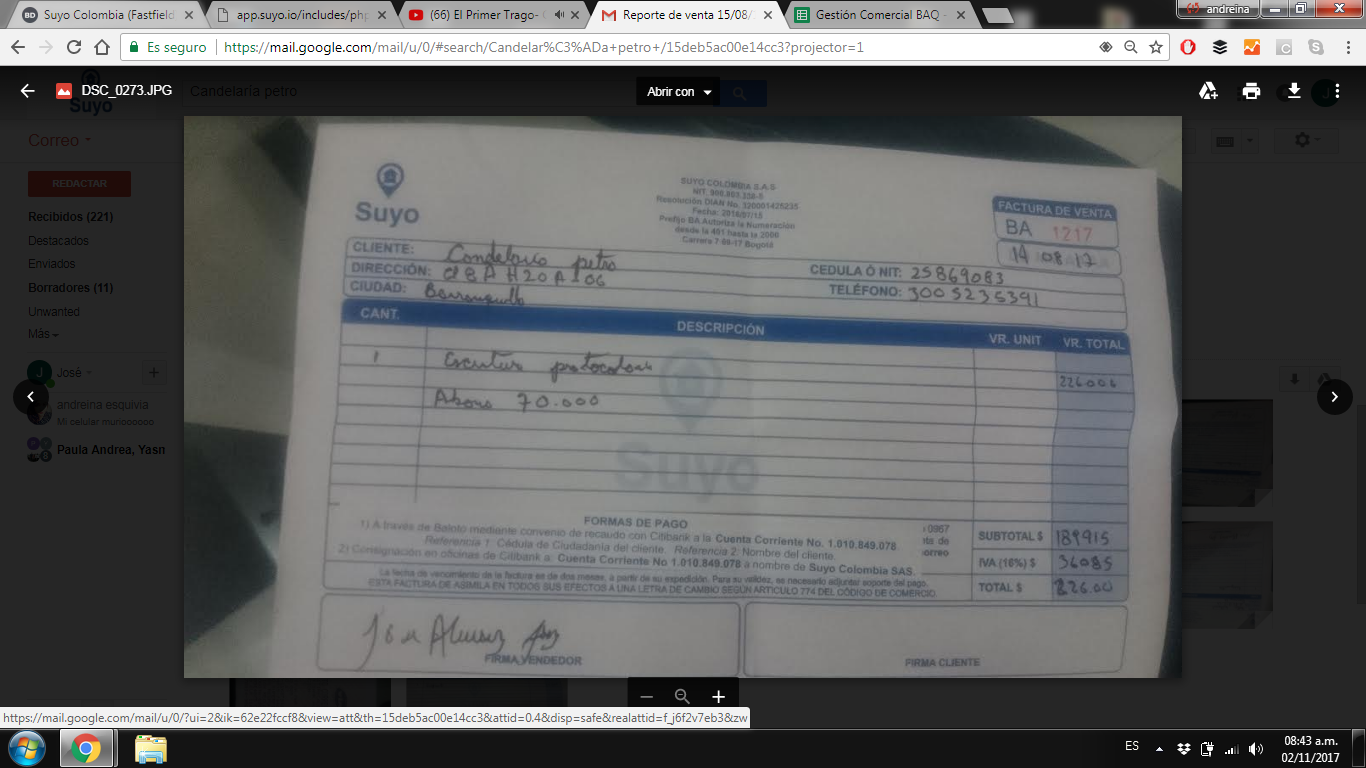 Suyo Colombia (Fastfield
app.suyo.io/includes/php
(66) El Primer Trago-
Reporte de venta 15/08/
Gestión Comercial BAQ -
andreina
Es seguro
https://mail.google.com/mail/u/0/#search/Candelar%C3%ADa+petro+/15deb5ac00e14cc3?projector=1
DSC_0273.JPG
Candelaría petro
Abrir con
Suyo
Correo
REDACTAR
Recibidos (221)
Destacados
Enviados
Borradores (11)
Unwanted
Más
José
andreina esquivia
Mi celular muriooooooo
Paula Andrea, Yasn
Suyo
SUYO COLOMBIA S.A.S
Resolución DIAN No. 320001426235
Fecha: 2016/07/15
Prefijo BA Autoriza la Numeración
desde la 401 hasta la 2000
Carrera 7 66-17 Bogotá
FACTURA DE VENTA
BA 1217
14 08 17
CLIENTE: petro
DIRECCIÓN:
CIUDAD: Barranquilla
CEDULA Ó NIT: 25869083
TELÉFONO: 3005235391
CANT. DESCRIPCIÓN VR. UNIT VR. TOTAL
1 Escritura
226000
Abono 70.000
Suyo
FORMAS DE PAGO
1) A través de Baloto mediante convenio de recaudo con Citibank a la Cuenta Corriente No. 1.010.849.078.
Referencia 1: Cédula de Ciudadanía del cliente. Referencia 2: Nombre del cliente.
2) Consignación en oficinas de Citibank a: Cuenta Corriente No 1.010.849.078 a nombre de Suyo Colombia SAS.
La fecha de vencimiento de la factura es de dos meses, a partir de su expedición. Para su validez, es necesario adjuntar soporte del pago.
ESTA FACTURA DE ASIMILA EN TODOS SUS EFECTOS A UNA LETRA DE CAMBIO SEGÚN ARTICULO 774 DEL CÓDIGO DE COMERCIO.
SUBTOTAL $ 189915
IVA (16%) $ 36085
TOTAL $ 226.00
FIRMA VENDEDOR
FIRMA CLIENTE
https://mail.google.com/mail/u/0/?ui=2&ik=62e22fccf8&view=att&th=15deb5ac00e14cc3&attid=0.4&disp=safe&realattid=f_j6f2v7eb3&zw
ES
08:43 a.m.
02/11/2017